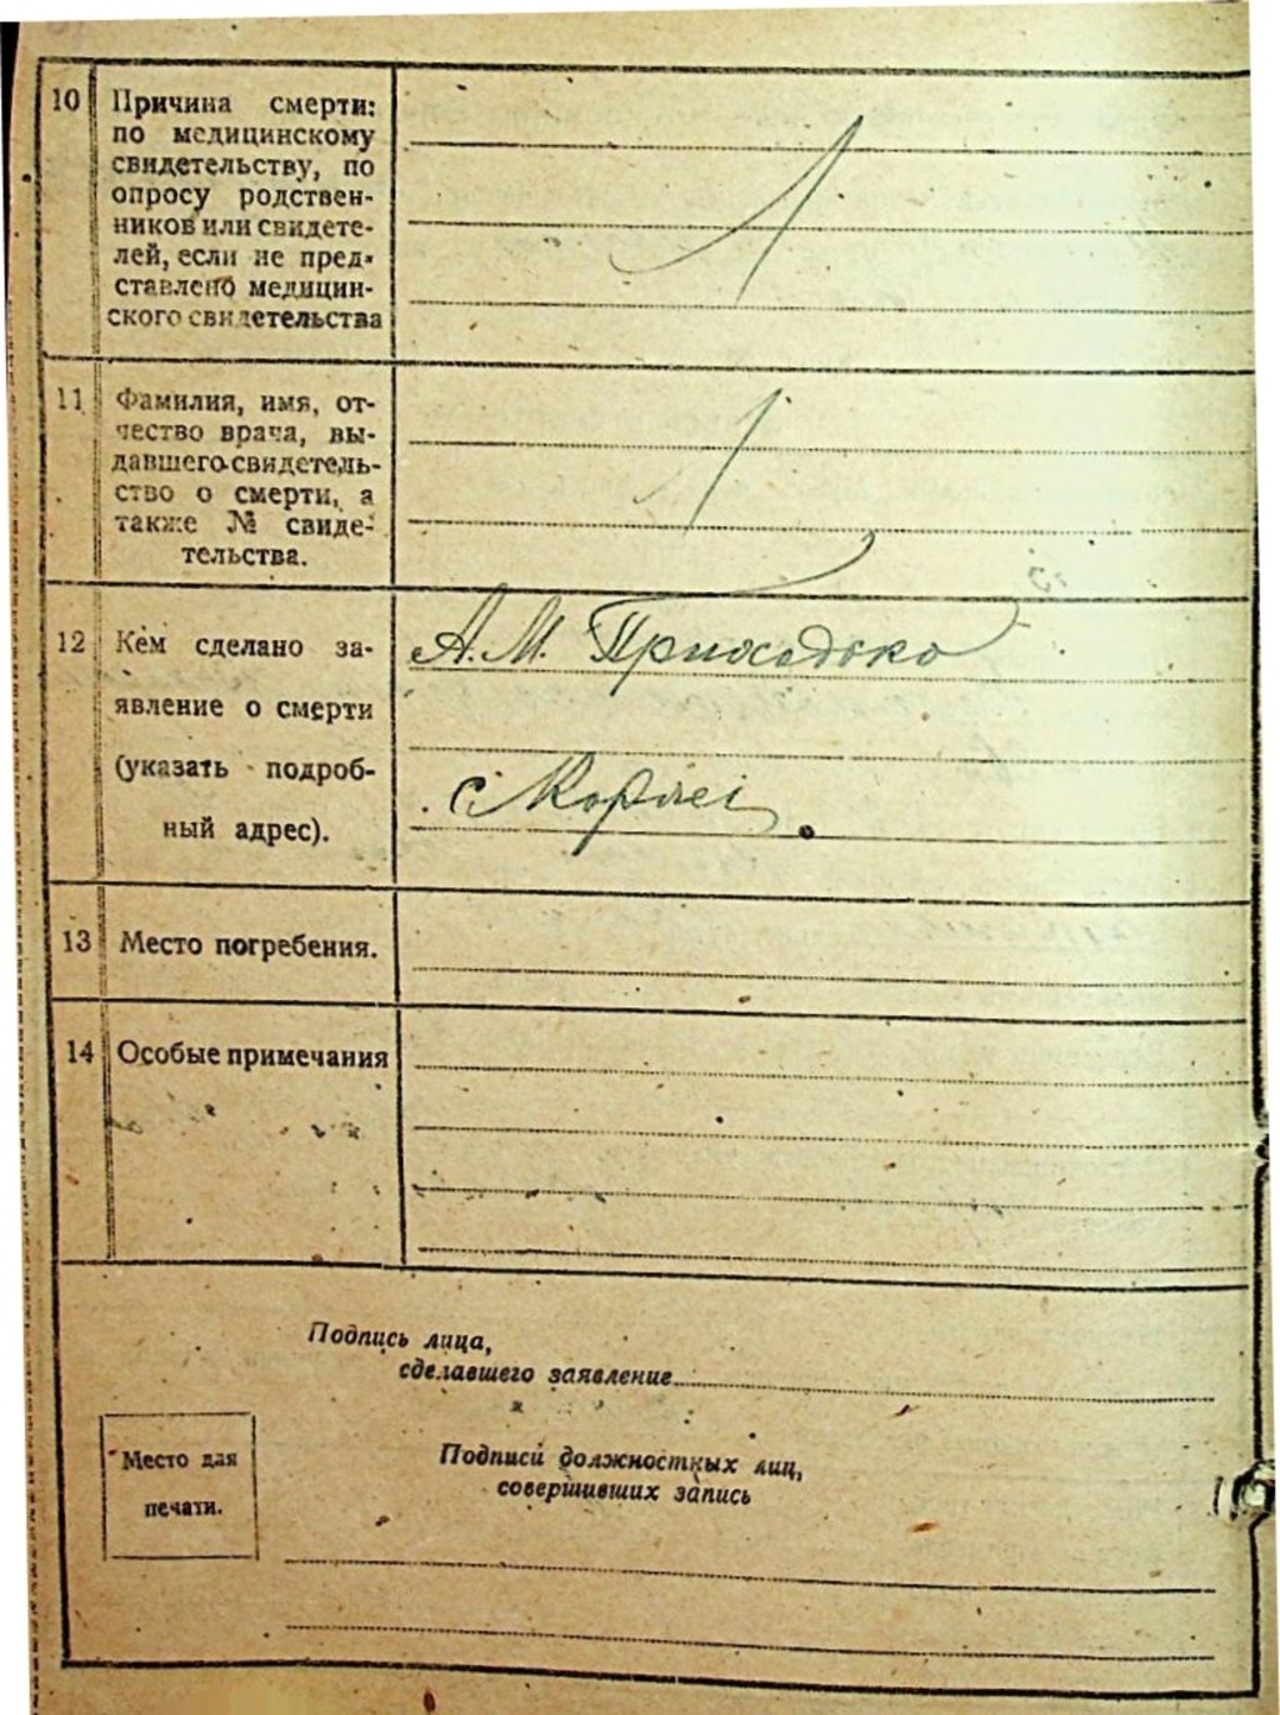 10 Причина смерти:
по медицинскому
свидетельству, по
опросу родствен-
ников или свидете-
лей, если не пред-
ставлено медицин-
ского свидетельства
11 Фамилия, имя, от-
чество врача, вы-
давшего свидетель-
ство о смерти, а
также № свиде-
тельства.
12 Кем сделано за-
явление о смерти
(указать подроб-
ный адрес).
А. М. Приходько
с
13 Место погребения.
14 Особые примечания
Подпись лица,
сделавшего заявление
Место для
печати.
Подписи должностных лиц,
совершивших запись